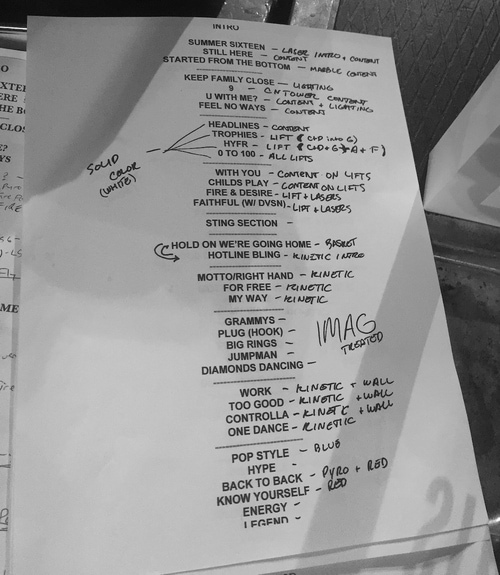 INTRO
SUMMER SIXTEEN - LASER INTRO + CONTENT
STILL HERE - CONTENT
STARTED FROM THE BOTTOM - MARBLE CONTENT
KEEP FAMILY CLOSE - LIGHTING
9 - CN TOWER CONTENT
U WITH ME? - CONTENT + LIGHTING
FEEL NO WAYS - CONTENT
HEADLINES - CONTENT
TROPHIES - LIFT (C+D into G)
HYFR - LIFT (C+D+G → A + F)
0 TO 100 - ALL LIFTS
SOLID
COLOR
(WHITE)
WITH YOU - CONTENT ON LIFTS
CHILDS PLAY - CONTENT ON LIFTS
FIRE & DESIRE - LIFT + LASERS
FAITHFUL (W/ DVSN) - LIFT + LASERS
STING SECTION -
HOLD ON WE'RE GOING HOME - BASKET
HOTLINE BLING - KINETIC INTRO
MOTTO/RIGHT HAND - KINETIC
FOR FREE - KINETIC
MY WAY - KINETIC
GRAMMYS -
PLUG (HOOK) -
BIG RINGS -
JUMPMAN -
DIAMONDS DANCING -
IMAG
TREATED
WORK - KINETIC + WALL
TOO GOOD - KINETIC + WALL
CONTROLLA - KINETIC + WALL
ONE DANCE - KINETIC
POP STYLE - BLUE
HYPE -
BACK TO BACK - PYRO + RED
KNOW YOURSELF - RED
ENERGY -
LEGEND -